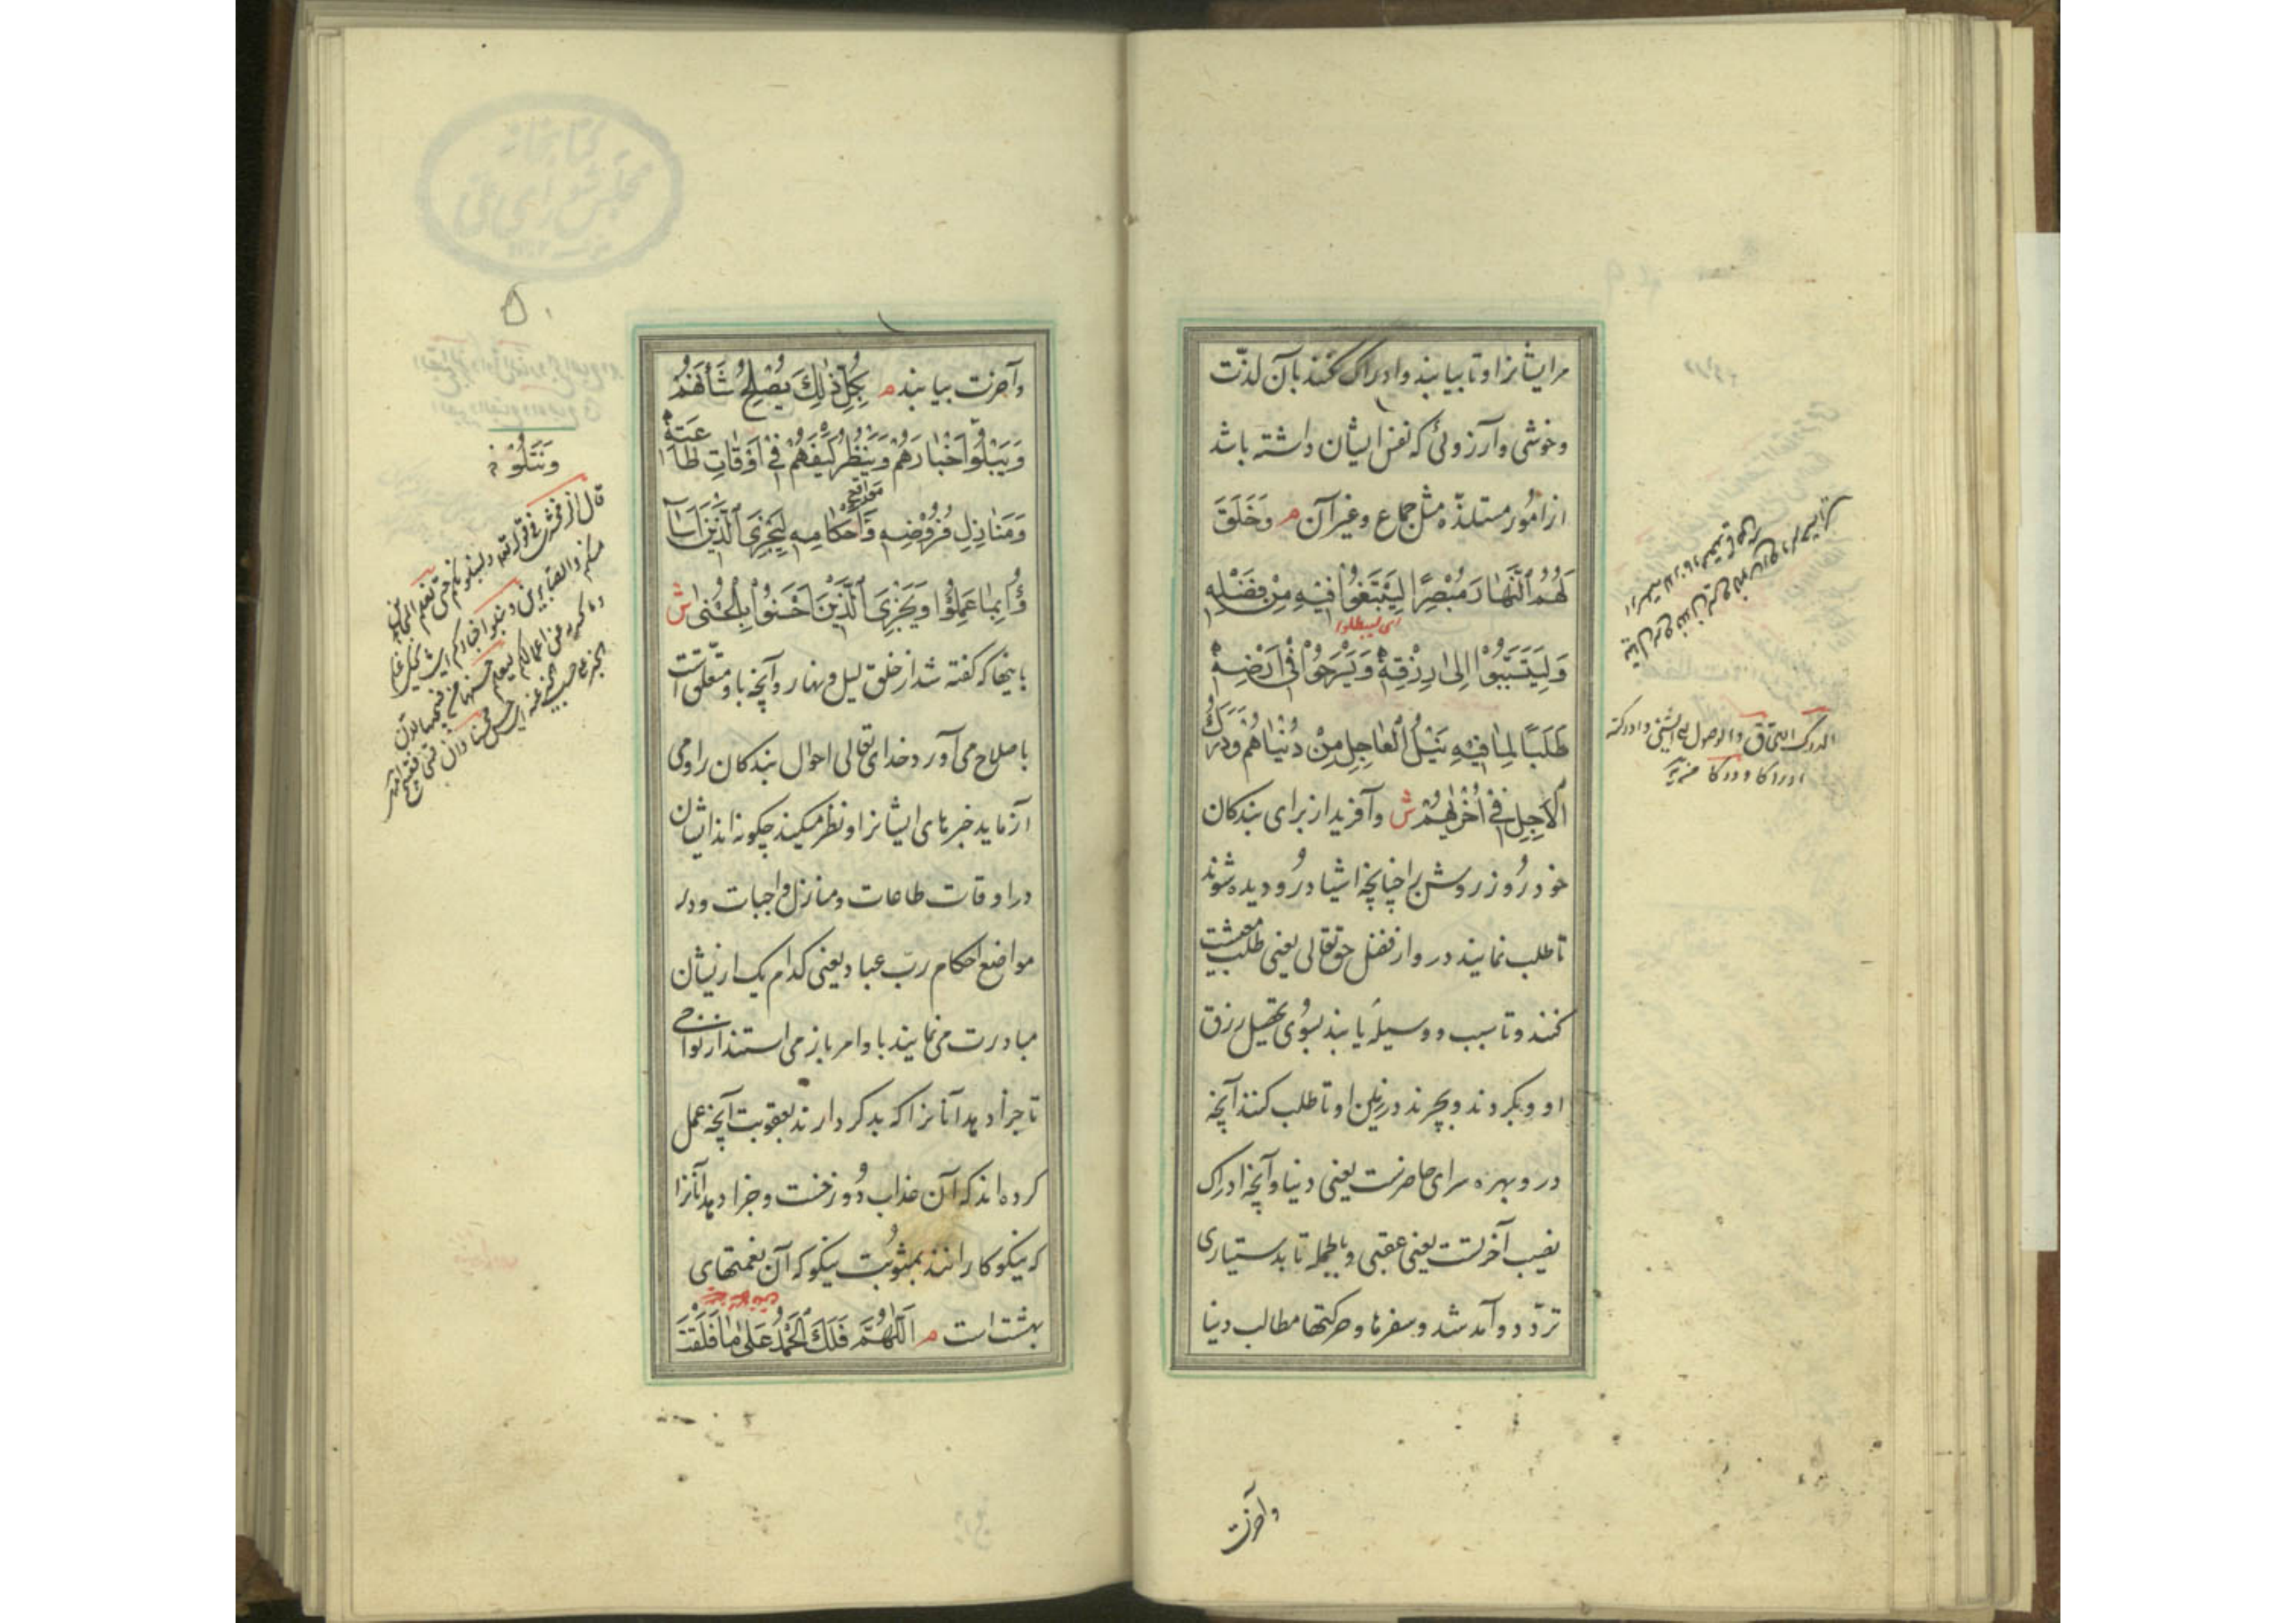 مرایشانرا و تا بیابند و ادراک کنند بآن لذّت
و خوشی و آرزوئی که نفس ایشان داشته باشد
از امُور مستلذّه مثل جماع و غیر آن م وَخَلَقَ
لَهُمُ ٱلنَّهَارَ مُبْصِرًا لِیَبْتَغُوا فِیْهِ مِنْ فَضْلِهِ
وَلِیَتَسَبَّبُوْا اِلیٰ رِزْقِهِ وَیَسْرَحُوْا فِیْ اَرْضِهِ
طَلَبًا لِمَا فِیْهِ نَیْلُ ٱلْعَاجِلِ مِنْ دُنْیَاهُمْ وَدَرَكُ
ٱلْاٰجِلِ فِیْ اُخْرٰیهُمْ ش و آفرید از برای بندکان
خود رُوز روشن را چنانچه اشیا در و دیده شوند
تا طلب نمایند در و از فضل حق تعالی یعنی طلب معیشت
کنند و تا سبب و وسیلۀ یابند بسُوی تحصیل رزق
او و بکردند و بچرند در زمین او تا طلب کنند آنچه
در و بهره سرای حاضرست یعنی دنیا و آنچه ادراک
نصیب آخرتست یعنی عقبی و بالجمله تا بدستیاری
تردّد و آمد شد و سفرها و حرکتها مطالب دنیا
الدرک اللحاق والوصول الی الشئ وادرکته
ادراکا ودرکا
وآخرت
وآخرت بیابند م بِکُلِّ ذٰلِكَ یُصْلِحُ شَأْنَهُمْ
وَیَبْلُوْا اَخْبَارَهُمْ وَیَنْظُرُ کَیْفَ هُمْ فِیْ اَوْقَاتِ طَاعَتِهِ
وَمَنَازِلِ فُرُوْضِهِ وَمَوَاقِعِ اَحْکَامِهِ لِیَجْزِیَ ٱلَّذِیْنَ اَسَآ
ؤُا بِمَا عَمِلُوْا وَیَجْزِیَ ٱلَّذِیْنَ اَحْسَنُوْا بِالْحُسْنیٰ ش
باینها که کفته شد از خلق لیل و نهار و آنچه باو متعلّق است
باصلاح می آورد خدای تعالی احوال بندکان را و می
آزماید خبرهای ایشانرا و نظر میکند چکونه اند ایشان
در اوقات طاعات و منازل واجبات و در
مواضع احکام ربّ عباد یعنی کدام یک ازیشان
مبادرت می نمایند باوامر باز می استند از نواهی
تا جزا دهد آنانرا که بدکردارند بعقوبت آنچه عمل
کرده اند که آن عذاب دُوزخست و جزا دهد آنانرا
که نیکوکارانند بمثُوبت نیکو که آن نعمتهای
بهشت است م اَللّٰهُمَّ فَلَكَ ٱلْحَمْدُ عَلیٰ مَا فَلَقْتَ
کتابخانه
مجلس شورای ملی
۵۰
وَنَبْلُوَ